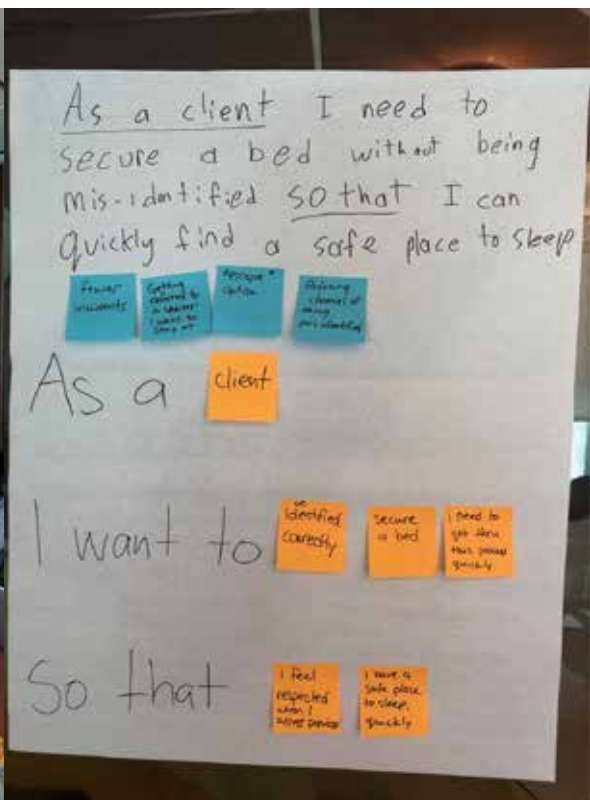 As a client I need to
secure a bed without being
mis-identified so that I can
quickly find a safe place to sleep
fewer
Getting
to
a shelter
I want to
stay at
option
being
As a
client
I want to
be
identified
correctly
secure
a bed
I need to
get thru
this process
quickly
So that
I feel
respected
when I
I have a
safe place
to sleep,
quickly